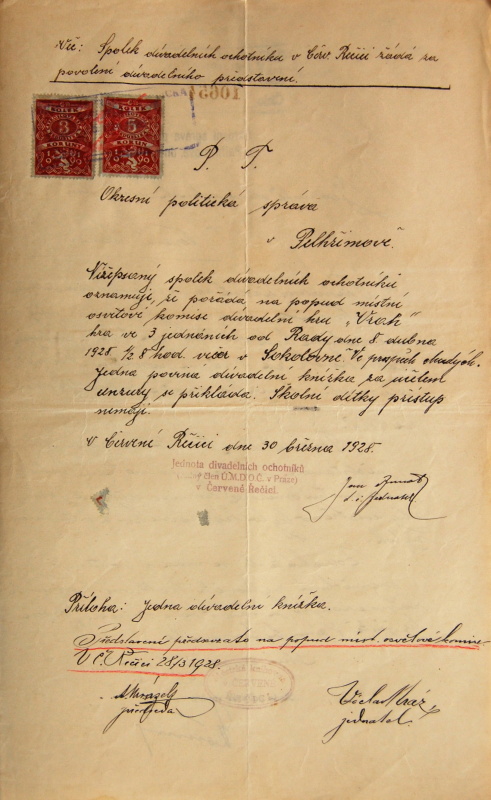 Věc: Spolek divadelních ochotníků v Červ. Řečici žádá za
povolení divadelního představení.
10651
KOLEK
3
KORUNY
KOLEK
5
KORUN
P. T.
Okresní politická správa
v Pelhřimově.
Nížepsaný spolek divadelních ochotníků
oznamuje, že pořádá na popud místní
osvětové komise divadelní hru „Vrah"
hra ve 3 jednáních od Rady dne 8 dubna
1928 ½ 8 hod. večer v Sokolovně. Ve prospěch chudých.
Jedna povinná divadelní knížka za účelem
cenzury se přikládá. Školní dítky přístup
nemají.
V Červené Řečici dne 30 března 1928.
Jednota divadelních ochotníků
člen Ú.M.D.O.Č. v Praze)
v Červené Řečici.
Jan
t. č. jednatel
Příloha: Jedna divadelní knížka.
Představení předsevzato na popud míst. osvětové komise
V Č. Řečici 28/3 1928.
předseda
Václav Mráz
jednatel.